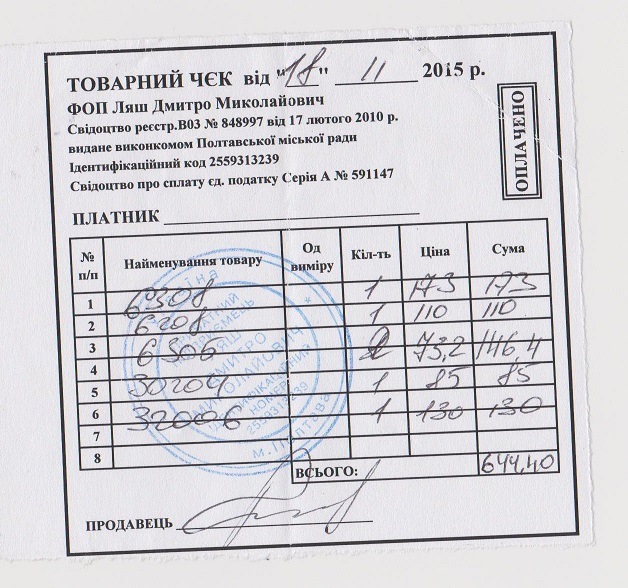 ТОВАРНИЙ ЧЄК від "18" 11 2015 р.
ФОП Ляш Дмитро Миколайович
Свідоцтво реєстр.В03 № 848997 від 17 лютого 2010 р.
видане виконкомом Полтавської міської ради
Ідентифікаційний код 2559313239
Свідоцтво про сплату єд. податку Серія А № 591147
ОПЛАЧЕНО
ПЛАТНИК
№ п/п Найменування товару Од виміру Кіл-ть Ціна Сума
1 6308 1 173 173
2 6208 1 110 110
3 6306 2 73,2 146,4
4 30204 1 85 85
5 32006 1 130 130
6
7
8
ВСЬОГО: 644,40
ПРОДАВЕЦЬ
ДМИТРО
МИКОЛАЙОВИЧ
ІДЕНТИФІКАЦІЙНИЙ
НОМЕР
2559313239
м.Полтава